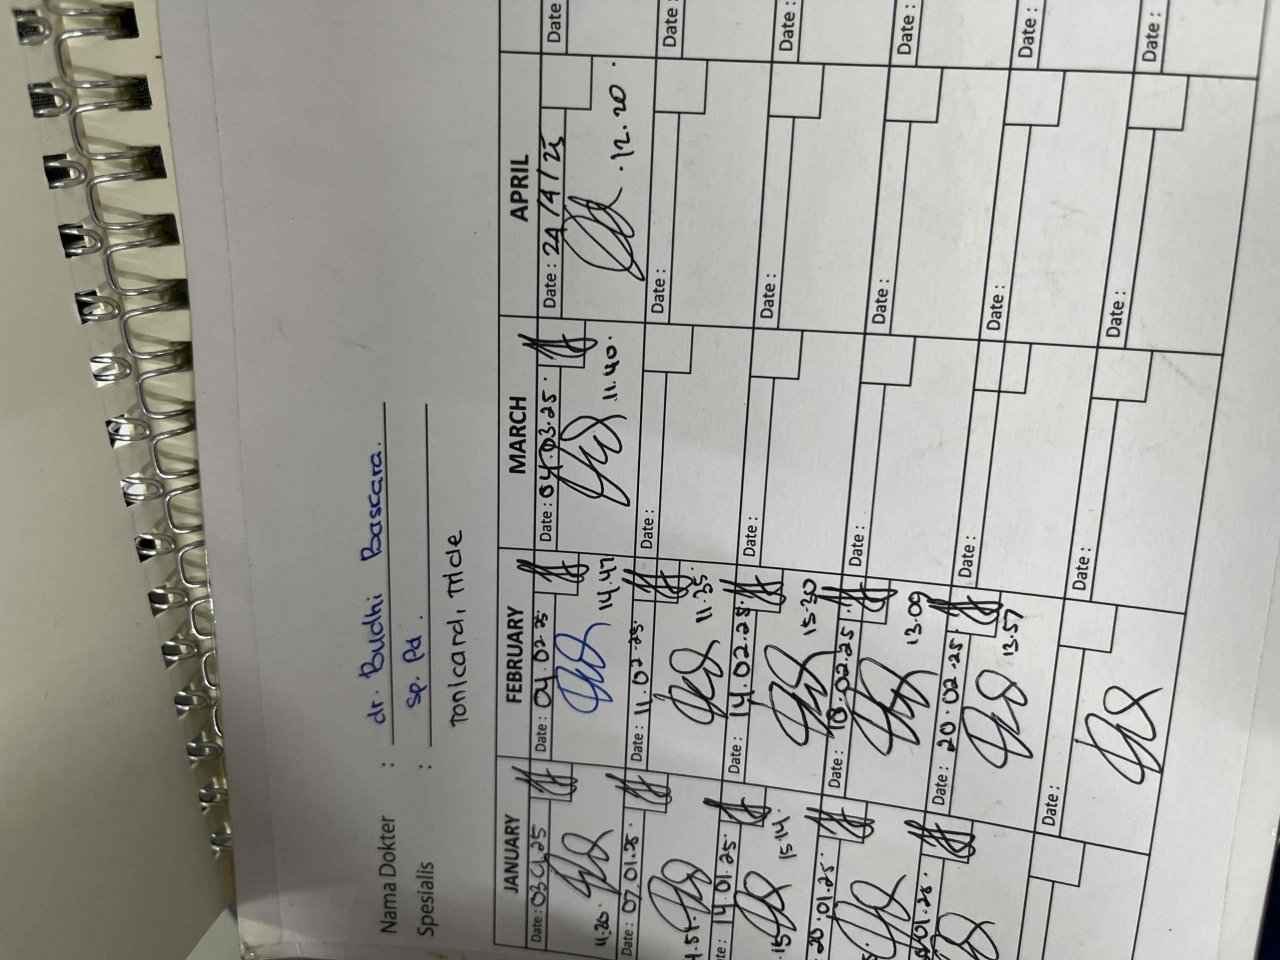 Nama Dokter : dr. Budhi Bascara.
Spesialis : Sp. Pd.
Tonicard, Tride
JANUARY FEBRUARY MARCH APRIL
Date: 03.01.25 Date: 04.02.25 Date: 04.03.25. Date: 24/4/25 Date
11.20. 14.47 11.40. 12.20
Date: 07.01.25. Date: 11.02.25. Date: Date: Date:
11.35.
14.01.25. Date: 14.02.25. Date: Date: Date:
15.14. 15.30
20.01.25. Date: 18.02.25 Date: Date: Date:
13.09
Date: 20.02.25 Date: Date: Date:
13.57
Date: Date: Date: Date: